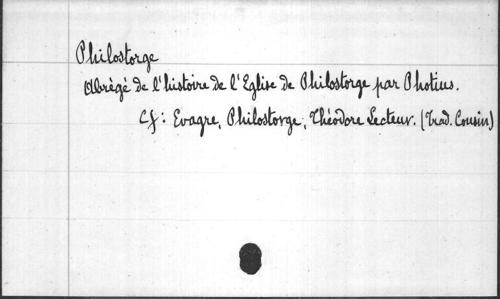 Philostorge
Abrègé de l'histoire de l'Eglise de Philostorge par Photius.
Cf: Evagre, Philostorge, Théodore Lecteur. (Trad. Cousin)